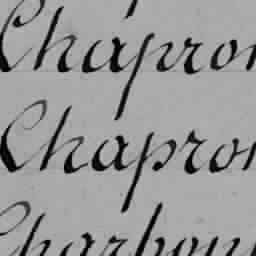 Chapron
Chapron
Charbon